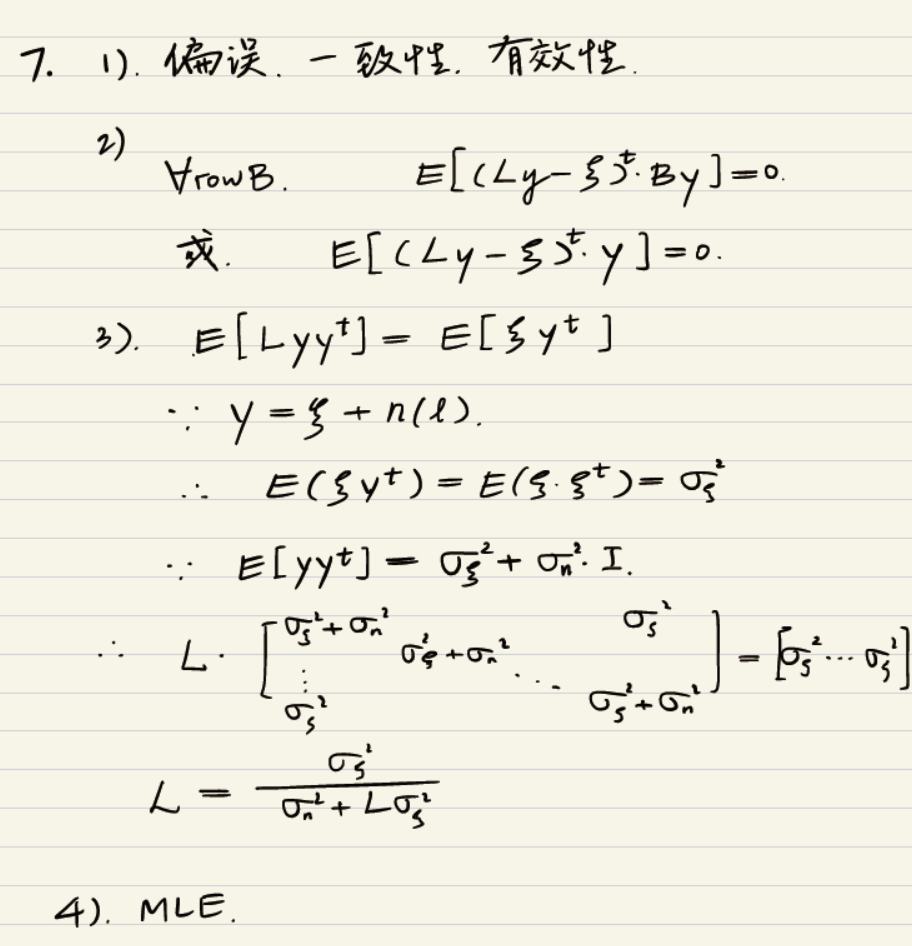 7. 1). 偏误. 一致性. 有效性.
2)
∀rowB. E[(Ly-ξ)ᵗ·By]=0.
或. E[(Ly-ξ)ᵗ·y]=0.
3). E[Lyyᵗ]= E[ξyᵗ]
∵ y=ξ+n(l).
∴ E(ξyᵗ)=E(ξ·ξᵗ)=σ_ξ²
∵ E[yyᵗ]=σ_ξ²+σ_n²·I.
∴ L·[σ_ξ²+σ_n² σ_ξ²
⋮ σ_ξ²+σ_n² ⋱
σ_ξ² σ_ξ²+σ_n²]=[σ_ξ²…σ_ξ²]
L = σ_ξ² / (σ_n²+Lσ_ξ²)
4). MLE.